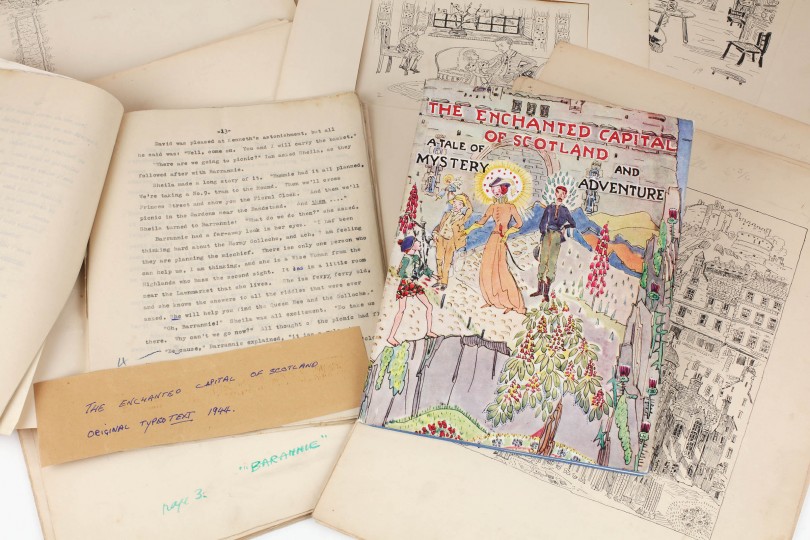 -13-
David was pleased at Kenneth's astonishment, but all
he said was: "Well, come on. You and I will carry the basket."
"There are we going to picnic?" Ian asked Sheila, as they
followed after with Barrannie.
Sheila made a long story of it. "Mummie had it all planned.
We're taking a No.9. tram to the Mound. Then we'll cross
Princes Street and show you the Floral Clock. And then we'll
picnic in the Gardens near the Bandstand. And then ...."
Sheila turned to Barrannie: "What do we do then?" she asked.
Barrannie had a far-away look in her eyes. "I had been
thinking hard about the Horny Gollochs, and och, I am feeling
they are planning the mischief. There iss only one person who
can help us, I am thinking, and she is a Wise Woman from the
Highlands who hass the second sight. It iss in a little room
near the Lawnmarket that she lives. She iss ferry, ferry old,
and she knows the answers to all the riddles that were ever
asked. She will help you find the Queen Bee and the Gollochs."
"Oh, Barrannie!" Sheila was all excitement. "Do take us
there. Why can't we go now?" All thought of the picnic had
"Because," Barrannie explained, "it iss a
THE ENCHANTED CAPITAL OF SCOTLAND
ORIGINAL TYPED TEXT 1944.
"BARANNIE"
page 3.
THE ENCHANTED CAPITAL
OF SCOTLAND
A TALE OF
MYSTERY AND
ADVENTURE